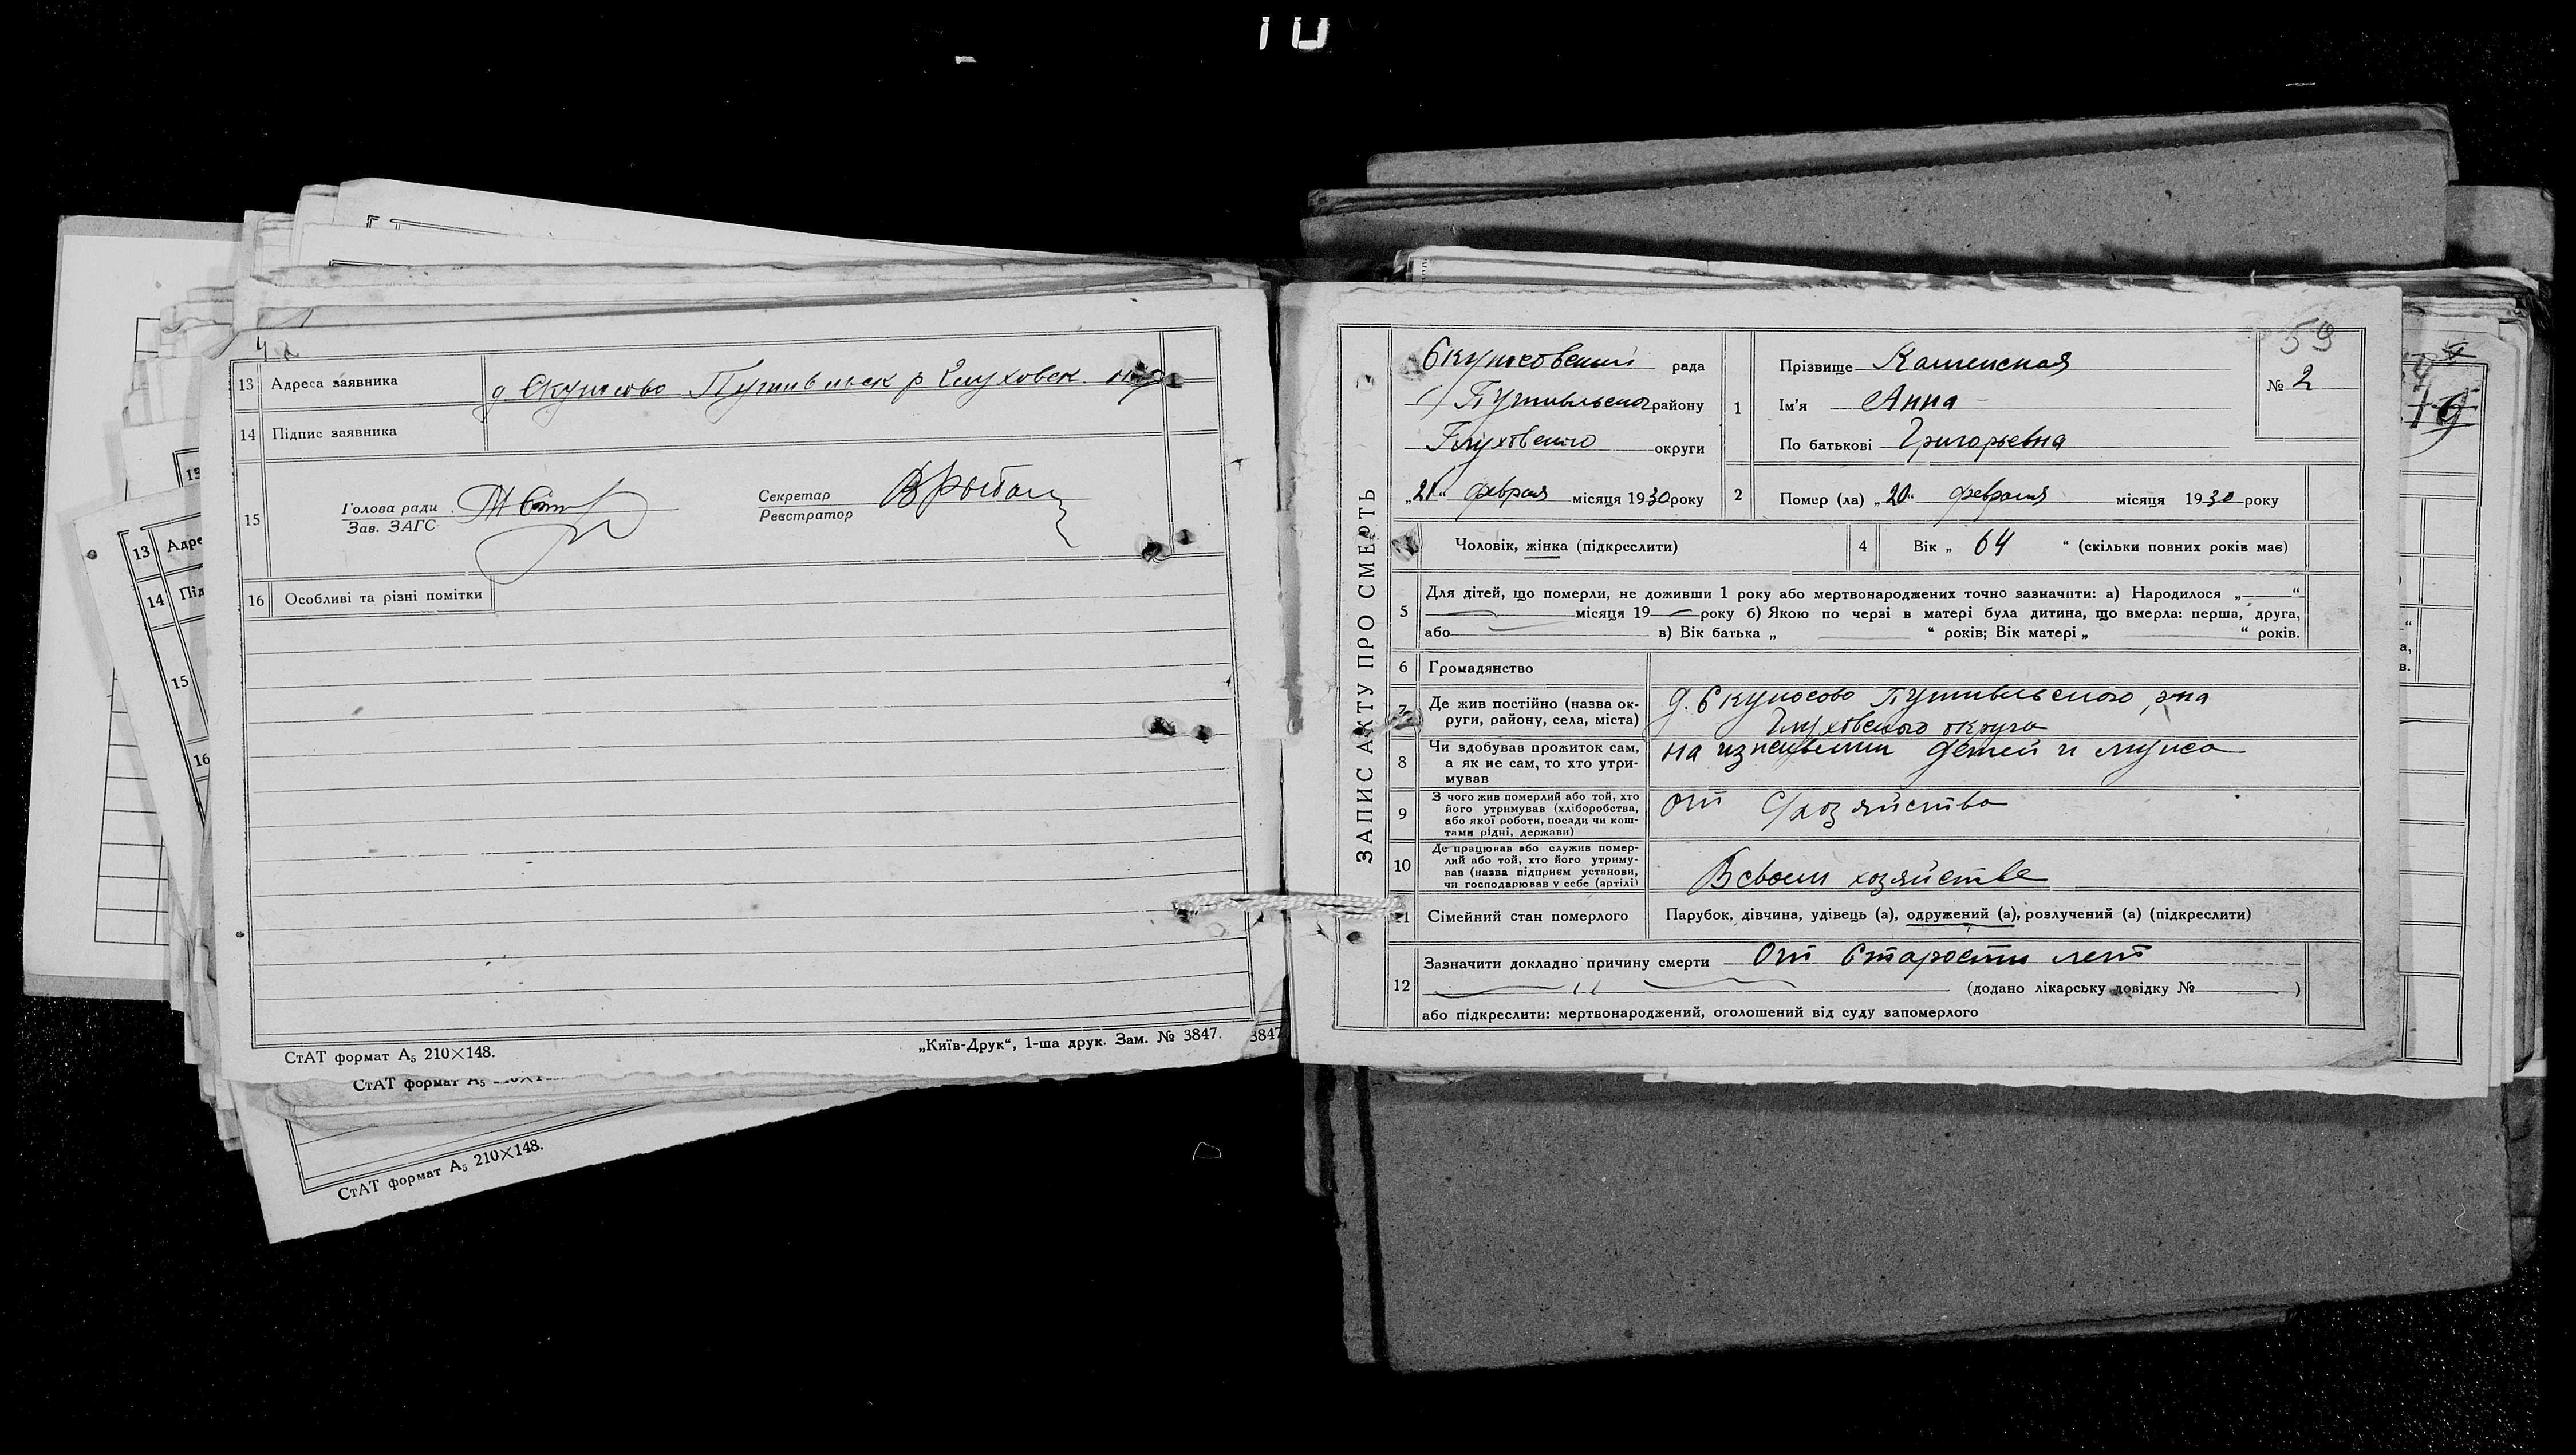 13 Адреса заявника д. Скуносово Путивльск р Глуховск.
14 Підпис заявника
15 Голова ради Секретар
Зав. ЗАГС Реєстратор
16 Особливі та різні помітки
СтАТ формат А5 210×148. „Київ-Друк“, 1-ша друк. Зам. № 3847.
3847
СтАТ формат А5
СтАТ формат А5 210×148.
13 Адре
14 Під
15
16
59
ЗАПИС АКТУ ПРО СМЕРТЬ
Скуносовский рада
Путивльского району
Глуховского округи
„21“ февраля місяця 1930 року
1 Прізвище Каменская
Ім'я Анна
По батькові Григорьевна
№ 2
2 Помер (ла) „20“ февраля місяця 1930 року
Чоловік, жінка (підкреслити)
4 Вік „ 64 “ (скільки повних років має)
5 Для дітей, що померли, не доживши 1 року або мертвонароджених точно зазначити: а) Народилося „ “
місяця 19 року б) Якою по черзі в матері була дитина, що вмерла: перша, друга,
або в) Вік батька „ “ років; Вік матері „ “ років.
6 Громадянство
7 Де жив постійно (назва ок-
руги, району, села, міста)
д. Скуносово Путивльского р-на
Глуховского округа
8 Чи здобував прожиток сам,
а як не сам, то хто утри-
мував
на иждевении детей и мужа
9 З чого жив померлий або той, хто
його утримував (хліборобства,
або якої роботи, посади чи кош-
тами рідні, держави)
от с/хозяйства
10 Де працював або служив помер-
лий або той, хто його утриму-
вав (назва підприєм установи,
чи господарював у себе (артілі)
В своем хозяйстве
11 Сімейний стан померлого Парубок, дівчина, удівець (а), одружений (а), розлучений (а) (підкреслити)
12 Зазначити докладно причину смерти От Старости лет
(додано лікарську довідку № )
або підкреслити: мертвонароджений, оголошений від суду запомерлого